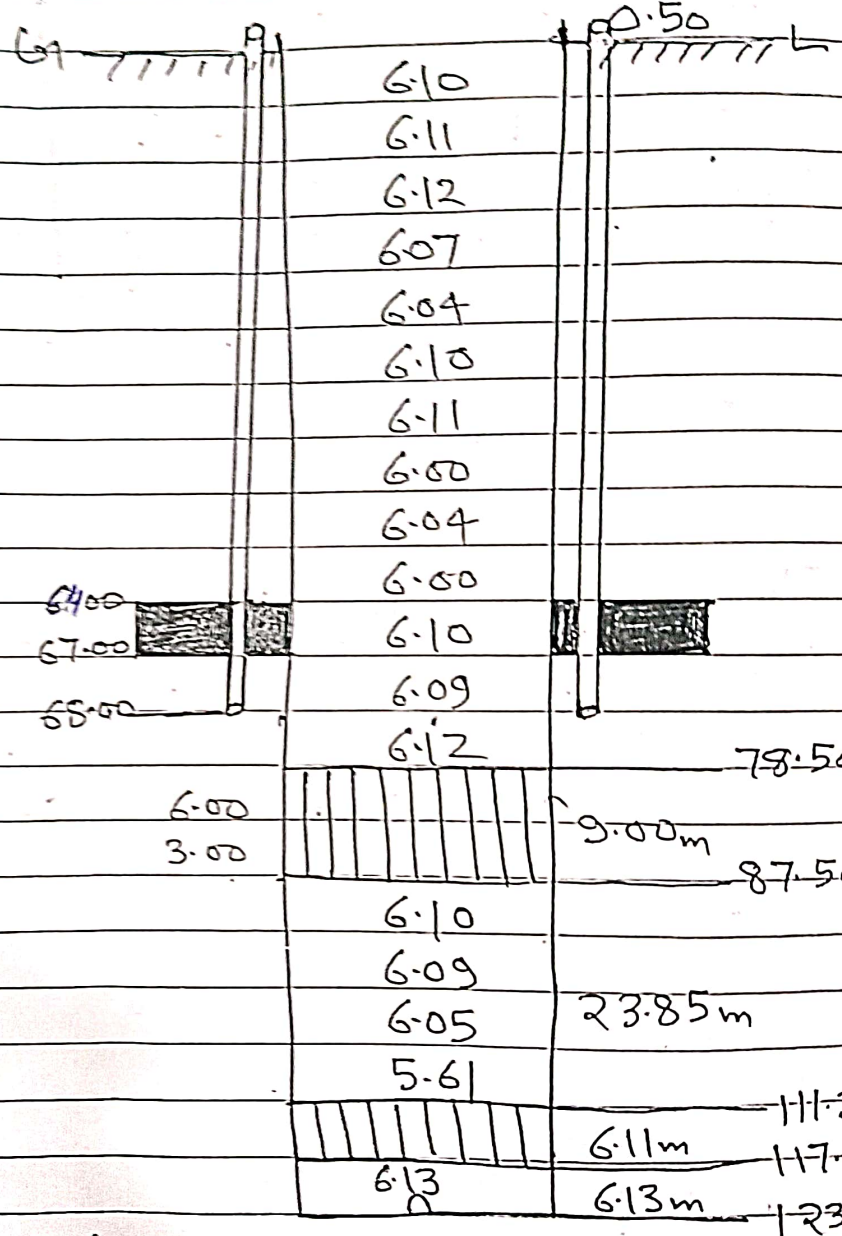 G 0.50 L
6.10
6.11
6.12
6.07
6.04
6.10
6.11
6.00
6.04
6.00
64.00
67.00 6.10
6.09
68.00
6.12 78.5
6.00
3.00 9.00m
87.5
6.10
6.09
6.05 23.85m
5.61
111.
6.11m
117.
6.13 6.13m
123